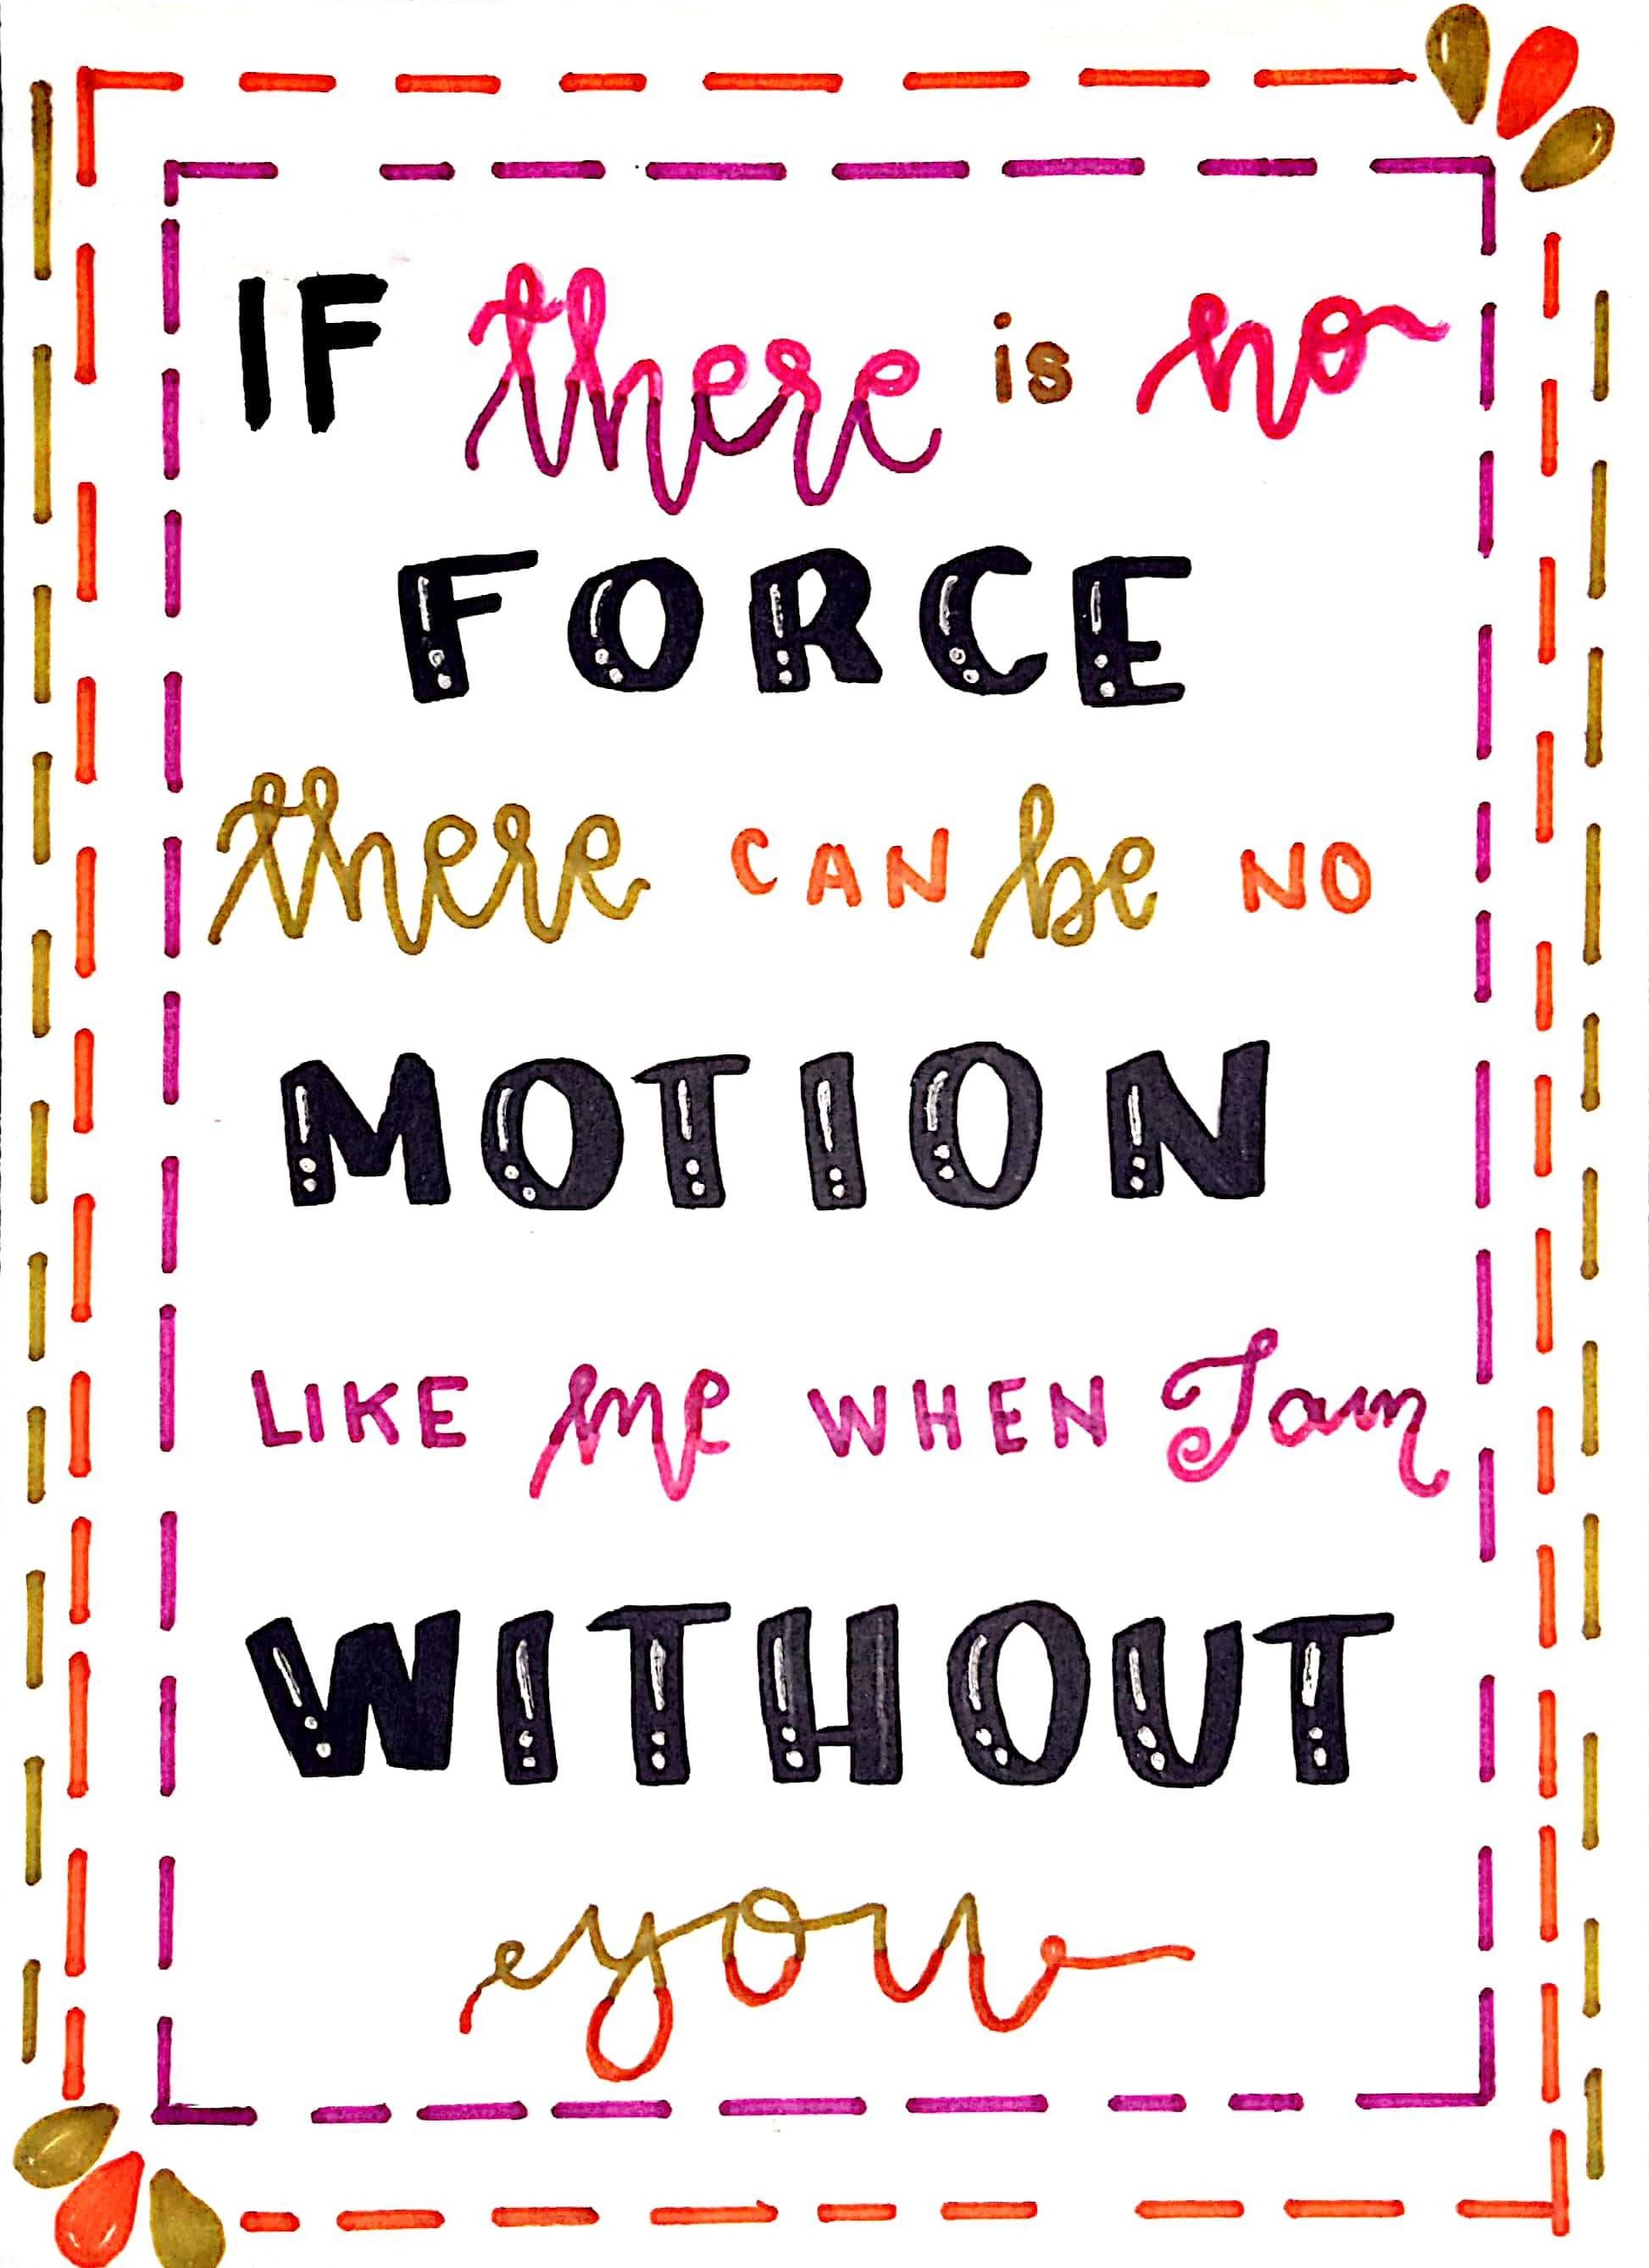 IF there is no
FORCE
there CAN be NO
MOTION
LIKE me WHEN I am
WITHOUT
you